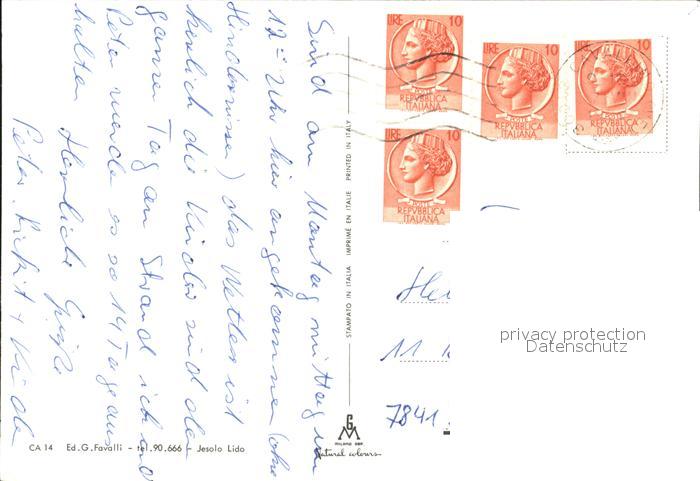 Sind am Montag mittag um
12 - Uhr hier angekommen (ohne
Hindernisse) das Wetter ist
herrlich die Kinder sind den
ganzen Tag am Strand ich und
Peter werden es so 14 Tage aus
halten Herzliche Grüße
Peter, + Kinder
CA 14 Ed. G. Favalli - tel. 90.666 - Jesolo Lido
STAMPATO IN ITALIA IMPRIMÉ EN ITALIE PRINTED IN ITALY
GM
MILANO
natural colours
LIRE 10
POSTE
REPVBBLICA
ITALIANA
LIRE 10
POSTE
REPVBBLICA
ITALIANA
LIRE 10
POSTE
REPVBBLICA
ITALIANA
LIRE 10
POSTE
REPVBBLICA
ITALIANA
11
7841
privacy protection
Datenschutz